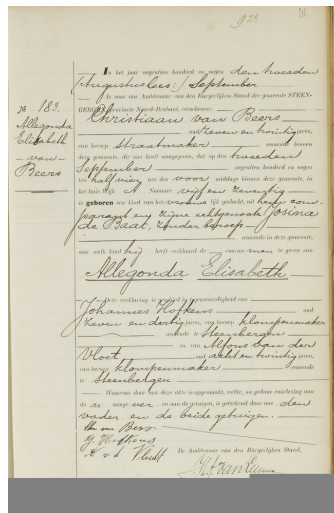 923
No 183.
Allegonda
Elisabeth
van
Beers
In het jaar negentien honderd en negen den tweeden
(Augustus lees:) September
is voor ons Ambtenaar van den Burgerlijken Stand der gemeente STEEN-
BERGEN, Provincie Noord-Brabant, verschenen:
Christiaan van Beers
oud zeven en twintig jaren,
van beroep straatmaker wonende binnen
deze gemeente, die ons heeft aangegeven, dat op den tweeden
September negentien honderd en negen
ten half vier ure des voor middags binnen deze gemeente, in
het huis Wijk A Nummer vijf en zeventig
is geboren een kind van het vrouwelijk geslacht, uit hem com-
parant en zijne echtgenoote Josina
de Baat, zonder beroep
wonende in deze gemeente,
aan welk kind hij heeft verklaard de voornamen te geven van
Allegonda Elisabeth
Deze verklaring is geschied in tegenwoordigheid van
Johannes Hofkens oud
zeven en dertig jaren, van beroep klompenmaker
wonende te Steenbergen
en van Alfons van der
Vloet oud acht en twintig jaren,
van beroep klompenmaker wonende
te Steenbergen
Waarvan door ons deze akte is opgemaakt, welke, na gedane voorlezing aan
den vader en de beide getuigen.
Chr van Beers
J. Hofkens
A v d Vlucht
De Ambtenaar van den Burgerlijken Stand,